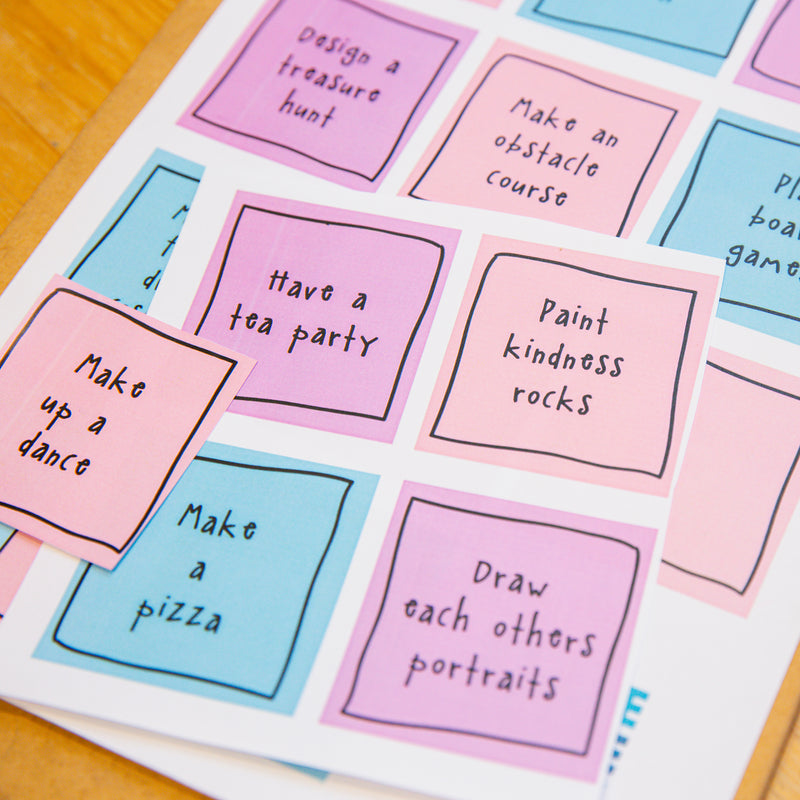 Design a
treasure
hunt
Make an
obstacle
course
games
Have a
tea party
Paint
kindness
rocks
Make
up a
dance
Make
a
pizza
Draw
each others
portraits